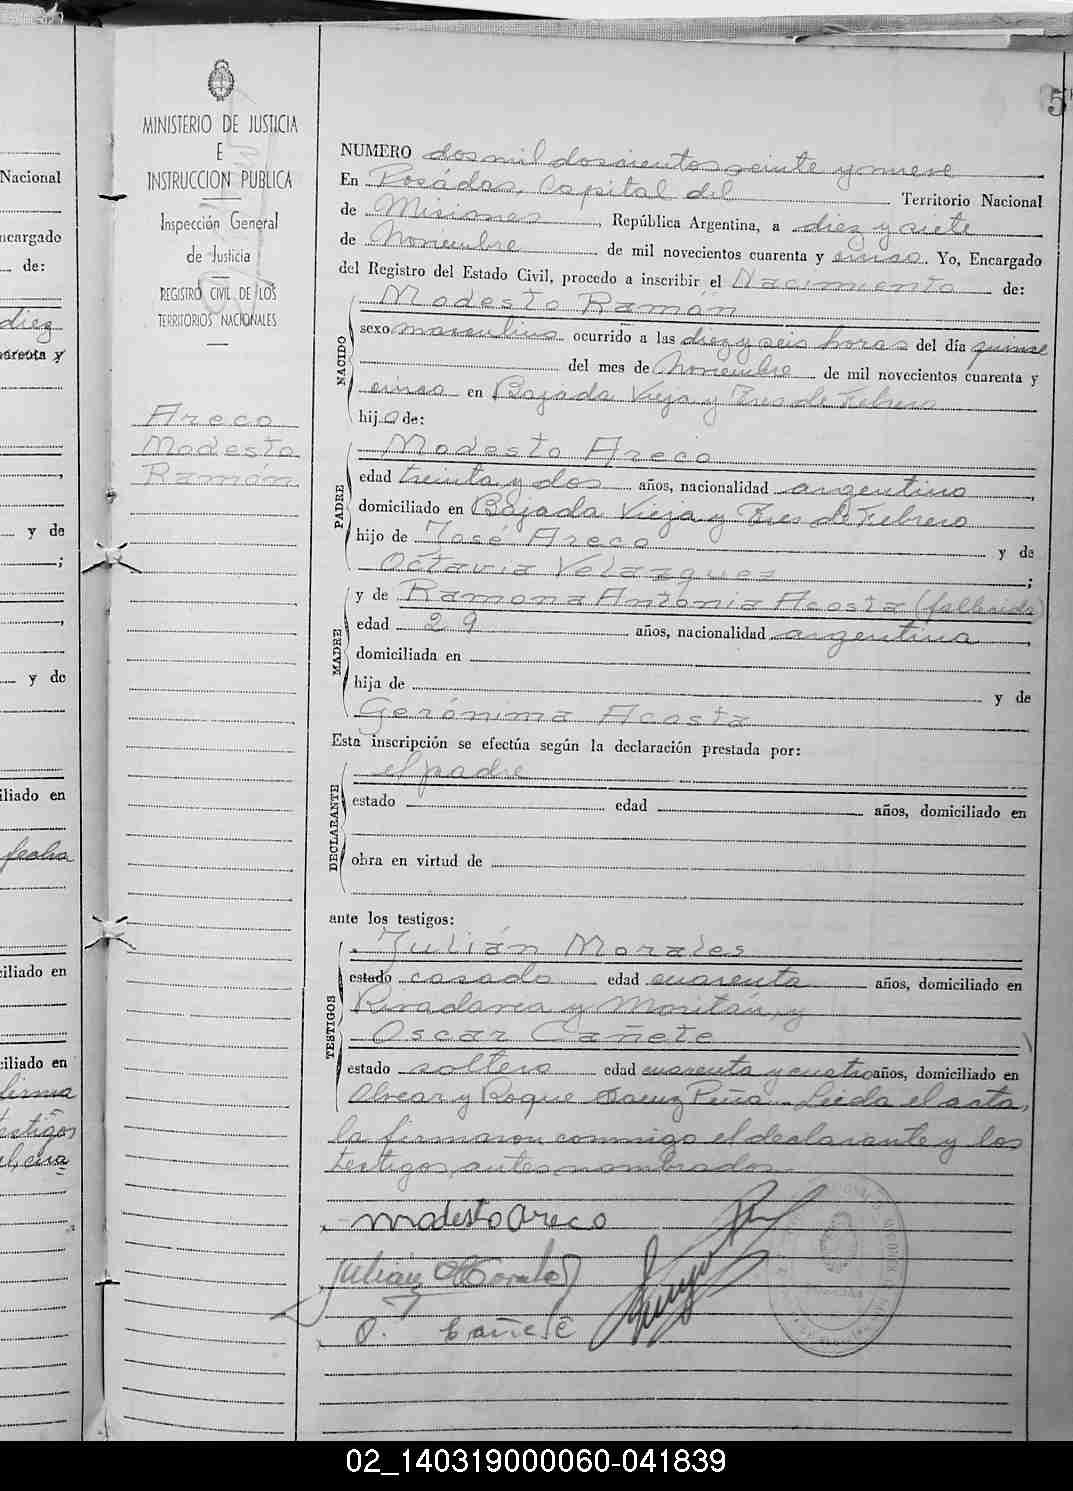 MINISTERIO DE JUSTICIA
E
INSTRUCCION PUBLICA
Inspección General
de Justicia
REGISTRO CIVIL DE LOS
TERRITORIOS NACIONALES
Areco
Modesto
Ramón
NUMERO dos mil doscientos veinte y nueve
En Posádas, Capital del Territorio Nacional
de Misiones, República Argentina, a diez y siete
de Noviembre de mil novecientos cuarenta y cinco. Yo, Encargado
del Registro del Estado Civil, procedo a inscribir el Nacimiento de:
NACIDO
Modesto Ramón
sexo masculino ocurrido a las diez y seis horas del día quince
del mes de Noviembre de mil novecientos cuarenta y
cinco en Bajada Vieja y Tres de Febrero
hijo de:
PADRE
Modesto Areco
edad treinta y dos años, nacionalidad argentino,
domiciliado en Bajada Vieja y Tres de Febrero
hijo de José Areco y de
Octavia Velazquez;
MADRE
y de Ramona Antonia Acosta (fallecida)
edad 29 años, nacionalidad argentina,
domiciliada en
hija de y de
Gerónima Acosta
Esta inscripción se efectúa según la declaración prestada por:
DECLARANTE
el padre
estado edad años, domiciliado en
obra en virtud de
ante los testigos:
TESTIGOS
Julián Morales
estado casado edad cuarenta años, domiciliado en
y
Oscar Cañete
estado soltero edad cuarenta y cuatro años, domiciliado en
Alvear y Roque Saenz Peña. Leída el acta,
la firmaron conmigo el declarante y los
testigos antes nombrados.
Modesto Areco
Julian Morales
O. Cañete
Nacional
ncargado
de:
diez
y de
;
y de
iliado en
fecha
iliado en
iliado en
firma
02_140319000060-041839